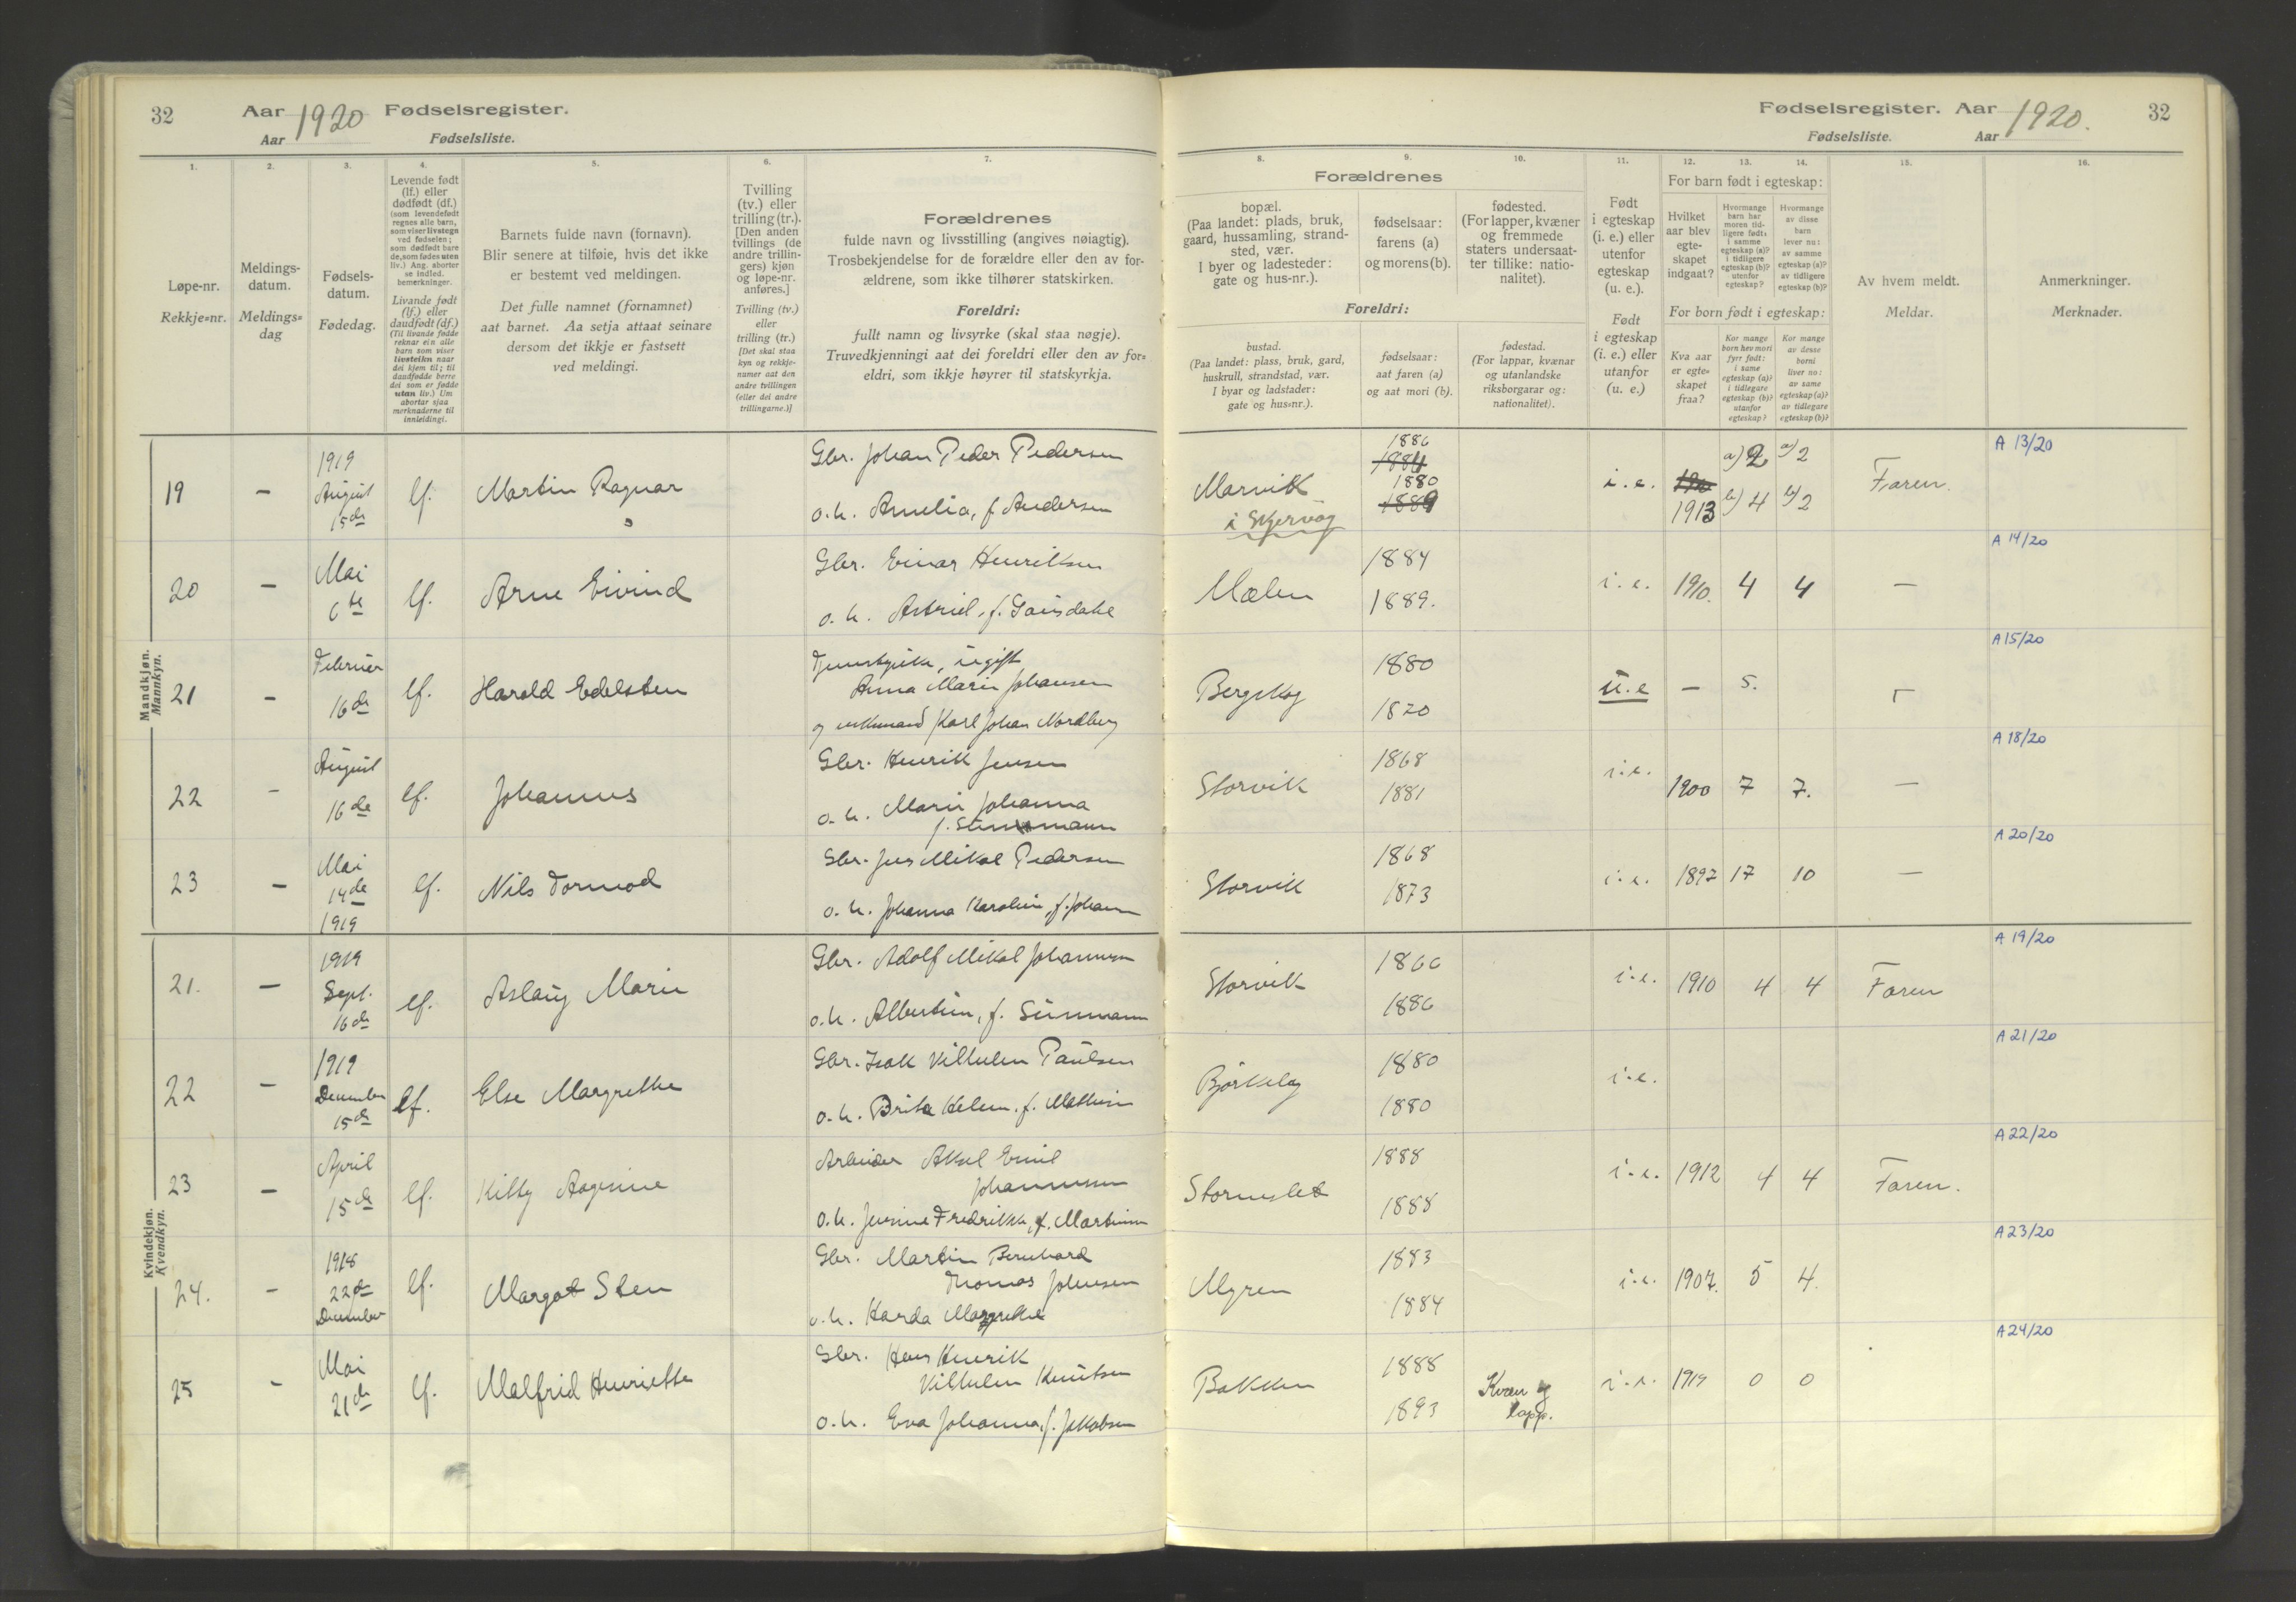 32
Aar 1920 Fødselsregister.
Aar
Fødselsliste.
1.
2.
3.
4.
5.
6.
7.
Løpe-nr.
Rekkje=nr.
Meldings-
datum.
Meldings=
dag
Fødsels-
datum.
Fødedag.
Levende født
(lf.) eller
dødfødt (df.)
(som levendefødt
regnes alle barn,
som viser livstegn
ved fødselen;
som dødfødt bare
de, som fødes uten
liv.) Ang. aborter
se indled.
bemerkninger.
Livande født
(lf.) eller
daudfødt (df.)
(Til livande fødde
reknar ein alle
barn som viser
livsteikn naar
dei kjem til; til
daudfødde berre
dei som er fødde
utan liv.) Um
abortar sjaa
merknaderne til
innleidingi.
Barnets fulde navn (fornavn).
Blir senere at tilføie, hvis det ikke
er bestemt ved meldingen.
Det fulle namnet (fornamnet)
aat barnet. Aa setja attaat seinare
dersom det ikkje er fastsett
ved meldingi.
Tvilling
(tv.) eller
trilling (tr.).
[Den anden
tvillings (de
andre trillin-
gers) kjøn
og løpe-nr.
anføres.]
Tvilling (tv.)
eller
trilling (tr.)
[Det skal staa
kyn og rekkje-
numer aat den
andre tvillingen
(eller dei andre
trillingarne.)]
Forældrenes
fulde navn og livsstilling (angives nøiagtig).
Trosbekjendelse for de forældre eller den av for-
ældrene, som ikke tilhører statskirken.
Foreldri:
fullt namn og livsyrke (skal staa nøgje).
Truvedkjenningi aat dei foreldri eller den av for=
eldri, som ikkje høyrer til statskyrkja.
Mandkjøn.
Mannkyn.
19
–
1919
August
15de
lf.
Martin Ragnar
Gbr. Johan Peder Pedersen
o.h. Amelia, f. Andersen
20
–
Mai
6te
lf.
Arne Eivind
Gbr. Einar Henriksen
o.h. Astrid, f.
21
–
Februar
16de
lf.
Harald Edelsten
ugift
Anna Marie Johansen
og Karl Johan Nordberg
22
–
August
16de
lf.
Johannes
Gbr. Henrik Jensen
o.h. Marie Johanna
23
–
Mai
14de
1919
lf.
Nils Tormod
Gbr. Jens Mikal Pedersen
o.h. Johanna Karoline, f. Johann
Kvindekjøn.
Kvendkyn.
21.
–
1919
Sept.
16de
lf.
Aslaug Marie
Gbr. Adolf Mikal Johannesen
o.h. Albertine, f. Sünmann
22
–
1919
December
15de
lf.
Else Margrethe
Gbr. Isak Vilhelm Paulsen
o.h. Brita Helene, f. Mathisen
23
–
April
15de
lf.
Kitty Aagine
Arbeider Aksel Emil
Johannesen
o.h. Jensine Fredrikke, f. Martinsen
24.
–
1918
22de
December
lf.
Margot Sten
Gbr. Martin Bernhard
Thomas Johnsen
o.h. Harda Margrethe
25
–
Mai
21de
lf.
Malfrid Henriette
Gbr. Hans Henrik
Vilhelm Knutsen
o.h. Eva Johanna, f. Jakobsen
Fødselsregister. Aar 1920.
32
Fødselsliste.
Aar
8.
9.
10.
11.
12.
13.
14.
15.
16.
Forældrenes
bopæl.
(Paa landet: plads, bruk,
gaard, hussamling, strand-
sted, vær.
I byer og ladesteder:
gate og hus-nr.).
fødselsaar:
farens (a)
og morens (b).
fødested.
(For lapper, kvæner
og fremmede
staters undersaat-
ter tillike: natio-
nalitet).
Foreldri:
bustad.
(Paa landet: plass, bruk, gard,
huskrull, strandstad, vær.
I byar og ladstader:
gate og hus=nr.).
fødselsaar:
aat faren (a)
og aat mori (b).
fødestad.
(For lappar, kvænar
og utanlandske
riksborgarar og:
nationalitet).
Født
i egteskap
(i. e.) eller
utenfor
egteskap
(u. e.).
Født
i egteskap
(i. e.) eller
utanfor
(u. e.)
For barn født i egteskap:
Hvilket
aar blev
egte-
skapet
indgaat?
Hvormange
barn har
moren tid-
ligere født:
i samme
egteskap (a)?
i tidligere
egteskap (b)?
utenfor
egteskap?
Hvormange
av disse
barn
lever nu:
av samme
egteskap (a)?
av tidligere
egteskap (b)?
For born født i egteskap:
Kva aar
er egte=
skapet
fraa?
Kor mange
born hev mori
fyrr født:
i same
egteskap (a)?
i tidlegare
egteskap (b)?
utanfor
egteskap?
Kor mange
av desse
borni
liver no:
av same
egteskap (a)?
av tidlegare
egteskap (b)?
Av hvem meldt.
Meldar.
Anmerkninger.
Merknader.
Marvik
i Skjervøy
1886
1884
1880
1889
i.e.
1913
a) 2
b) 4
a) 2
b) 2
Faren.
A 13/20
Mælen
1884
1889.
i.e.
1910.
4
4
–
A 14/20
Bergskog
1880
1820
u.e
–
5.
A 15/20
Storvik
1868
1881
i.e.
1900
7
7.
–
A 18/20
Storvik
1868
1873
i.e.
1892
17
10
–
A 20/20
Storvik
1866
1886
i.e.
1910
4
4
Faren
A 19/20
Bjørkeleg
1880
1880
i.e.
A 21/20
Storneslet
1888
1888
i.e.
1912
4
4
Faren.
A 22/20
Myren
1883
1884
i.e.
1907.
5
4.
A 23/20
Bakken
1888
1893
Kvæn og
lapp.
i.e.
1919
0
0
A 24/20